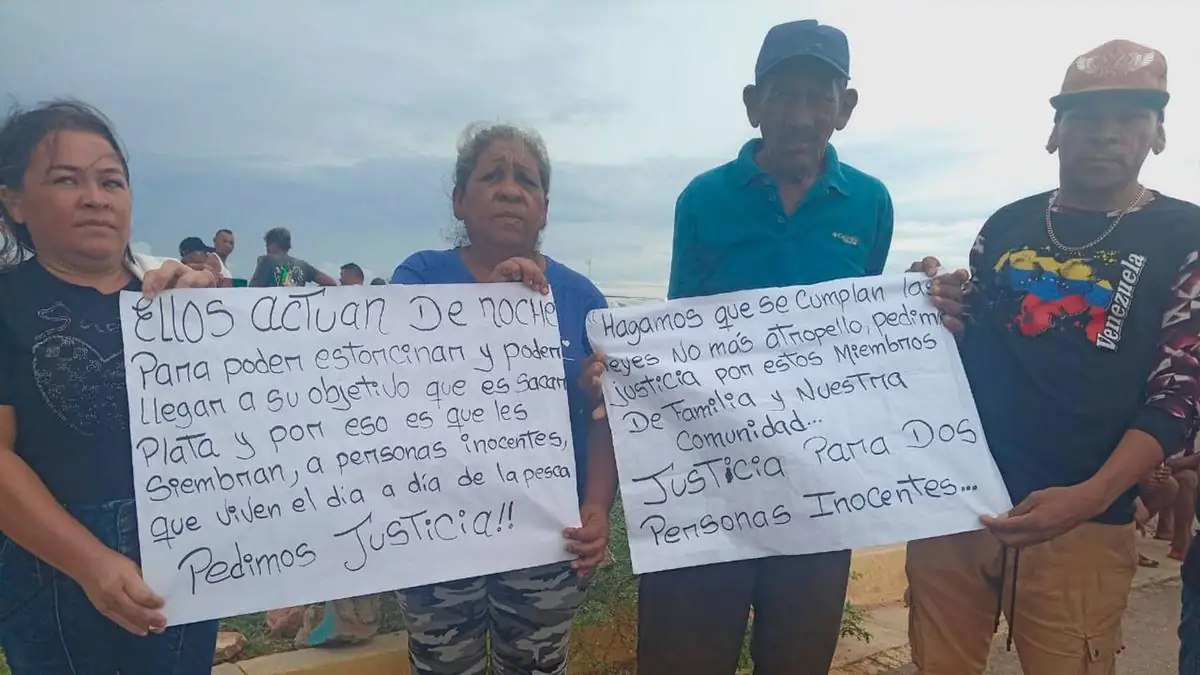 Ellos actuan De noche
Para poder estorcinar y poder
llegar a su objetivo que es sacar
Plata y por eso es que les
siembran, a personas inocentes,
que viven el dia a día de la pesca
Pedimos Justicia!!
Hagamos que se cumplan las
leyes No más atropello, pedimos
Justicia por estos Miembros
De Familia y Nuestra
Comunidad...
Justicia Para Dos
Personas Inocentes...
Venezuela